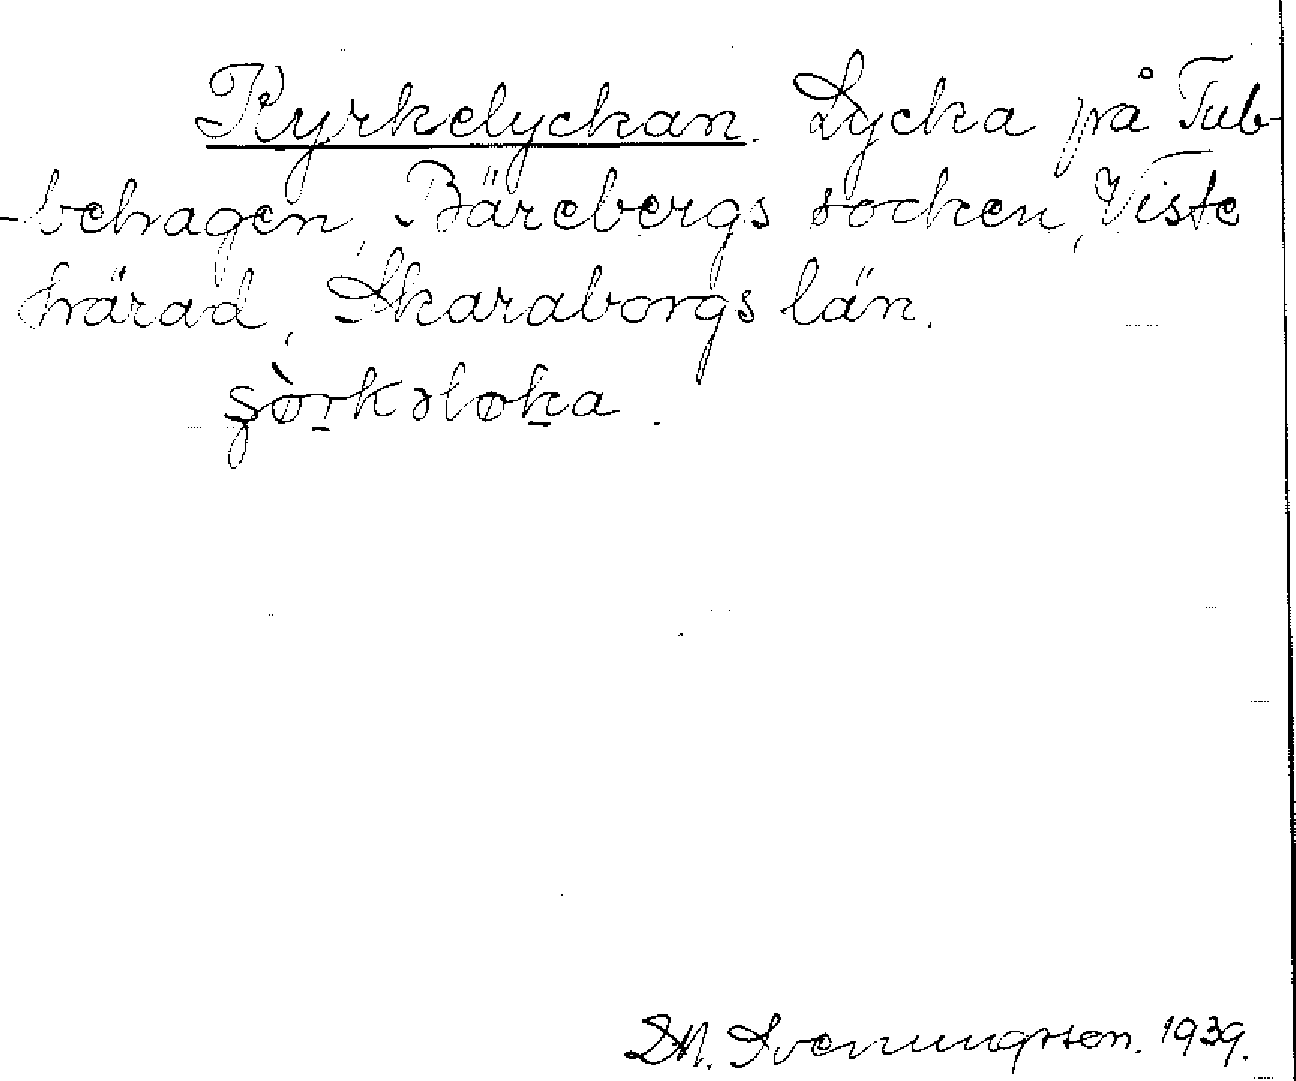 Kyrkelyckan. Lycka på Tub-
-behagen, Bärebergs socken, Viste
härad, Skaraborgs län.
Svenungsson. 1939.